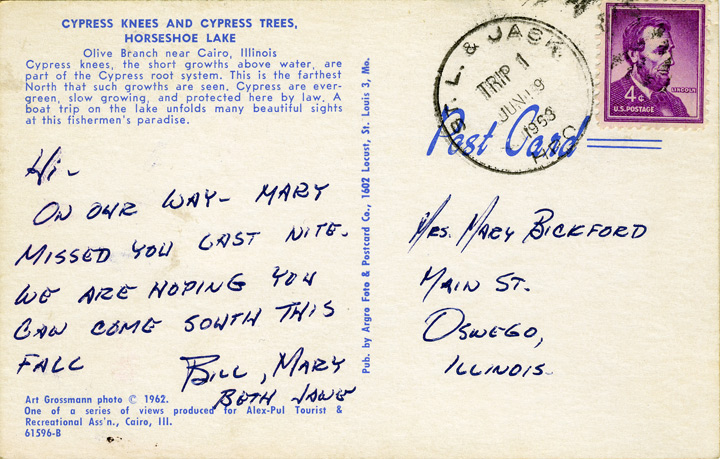 CYPRESS KNEES AND CYPRESS TREES,
HORSESHOE LAKE
Olive Branch near Cairo, Illinois
Cypress knees, the short growths above water, are
part of the Cypress root system. This is the farthest
North that such growths are seen. Cypress are ever-
green, slow growing, and protected here by law. A
boat trip on the lake unfolds many beautiful sights
at this fishermen's paradise.
Hi-
ON OUR WAY- MARY
MISSED YOU LAST NITE.
WE ARE HOPING YOU
CAN COME SOUTH THIS
FALL
BILL, MARY
BETH JANE
Art Grossmann photo © 1962.
One of a series of views produced for Alex-Pul Tourist &
Recreational Ass'n., Cairo, Ill.
61596-B
Pub. by Argro Foto & Postcard Co., 1602 Locust, St. Louis 3, Mo.
ST. L. & JACK.
TRIP 1
JUN 19
1963
Post Card
LINCOLN
4¢
U.S. POSTAGE
MRS. MARY BICKFORD
MAIN ST.
OSWEGO,
ILLINOIS.